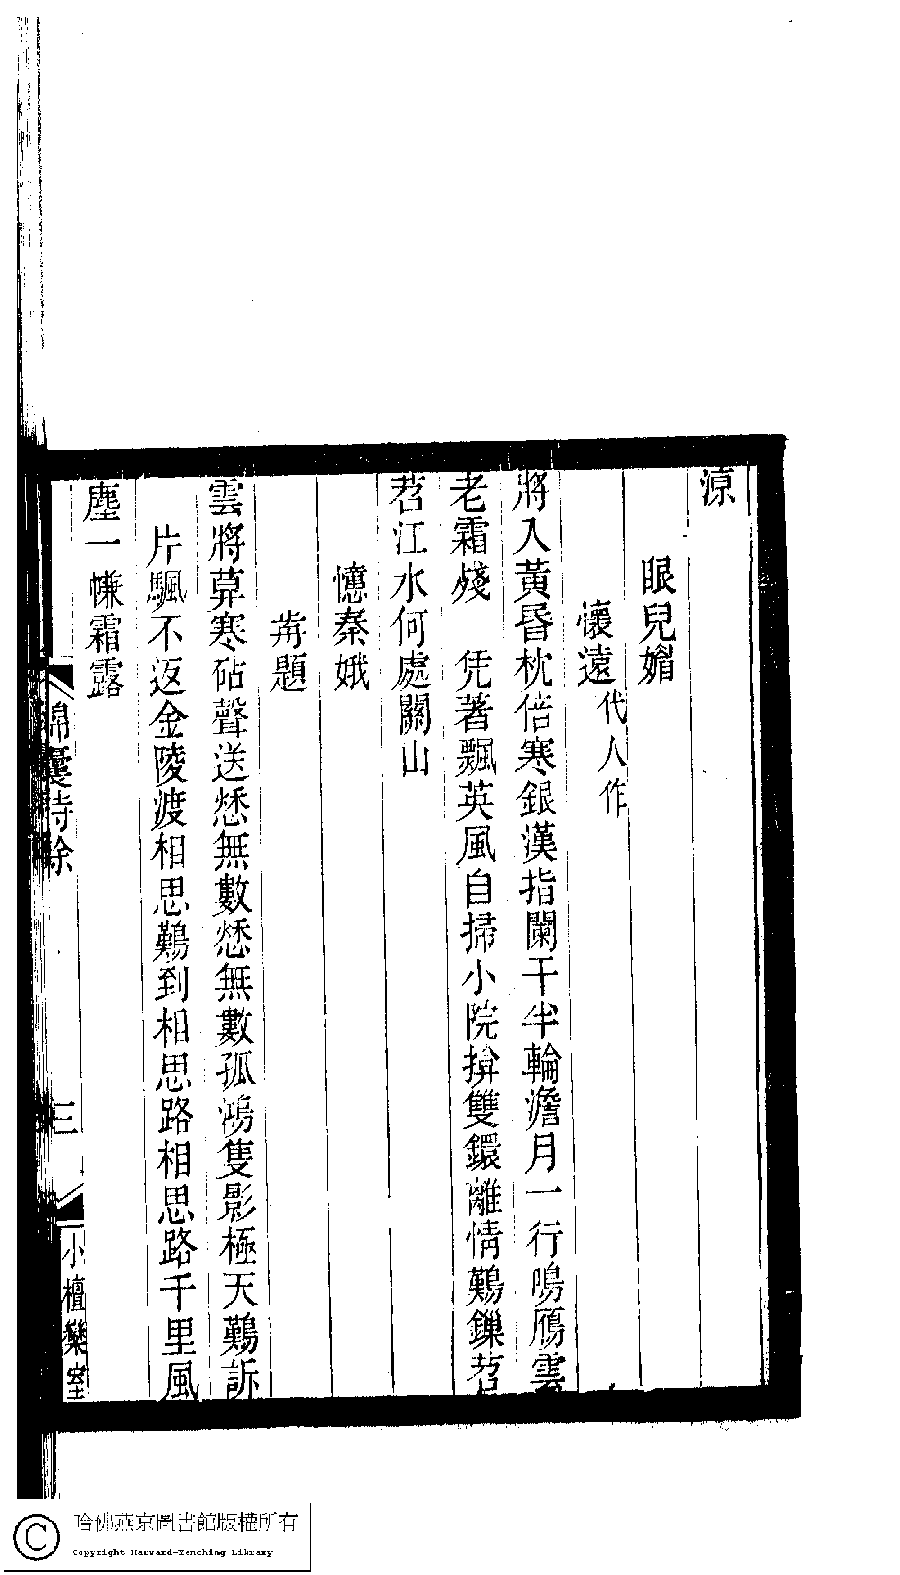 源
眼兒媚
懷遠代人作
將入黃昏枕倍寒銀漢指闌干半輪澹月一行鳴鴈雲
老霜殘　凭著飄英風自掃小院揜雙鐶離情難鏁苕
苕江水何處關山
憶秦娥
前題
雲將莫寒砧聲送愁無數愁無數孤鴻隻影極天難訴
片颿不返金陵渡相思難到相思路相思路千里風
塵一㡘霜露
錦囊詩餘
三
小檀欒室
哈佛燕京圖書館版權所有
Copyright Harvard-Yenching Library